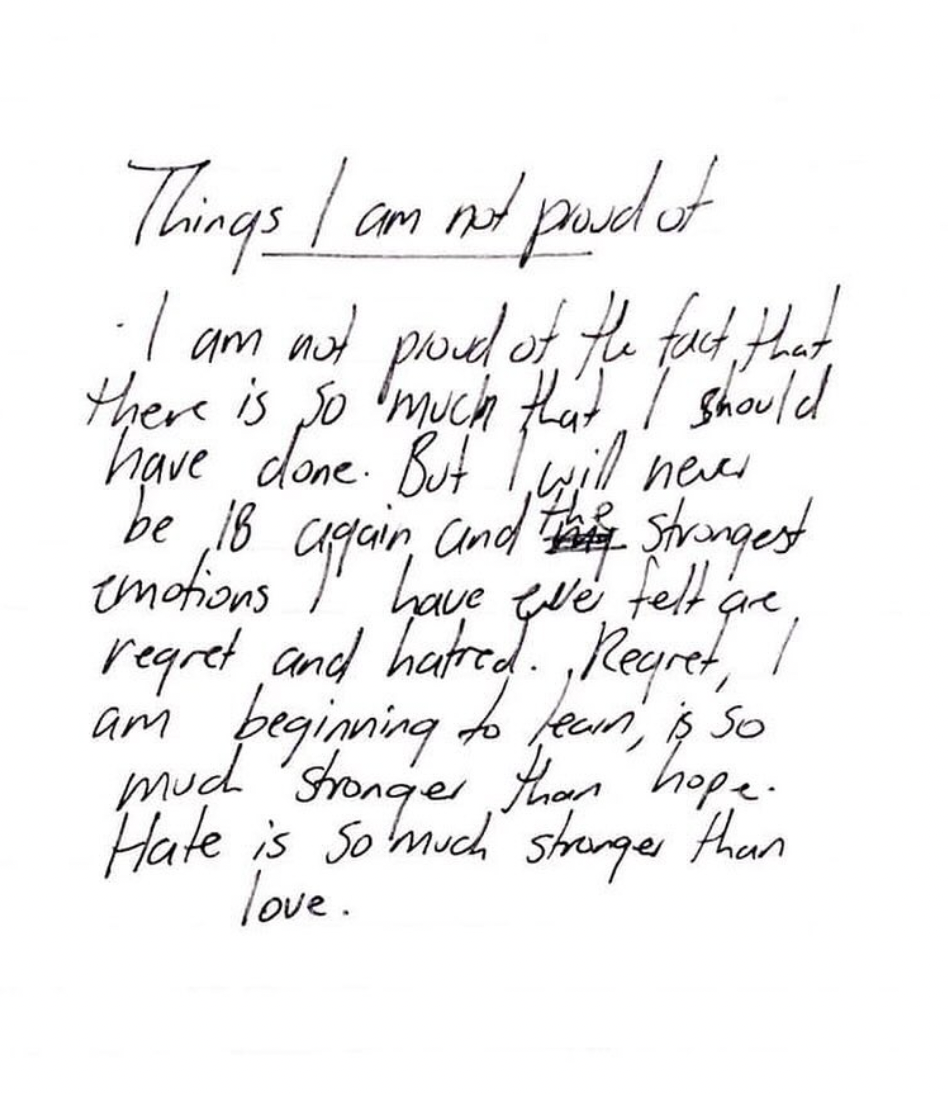 Things I am not proud of
· I am not proud of the fact that
there is so much that I should
have done. But I will never
be 18 again and the strongest
emotions I have ever felt are
regret and hatred. Regret, I
am beginning to learn, is so
much stronger than hope.
Hate is so much stronger than
love.